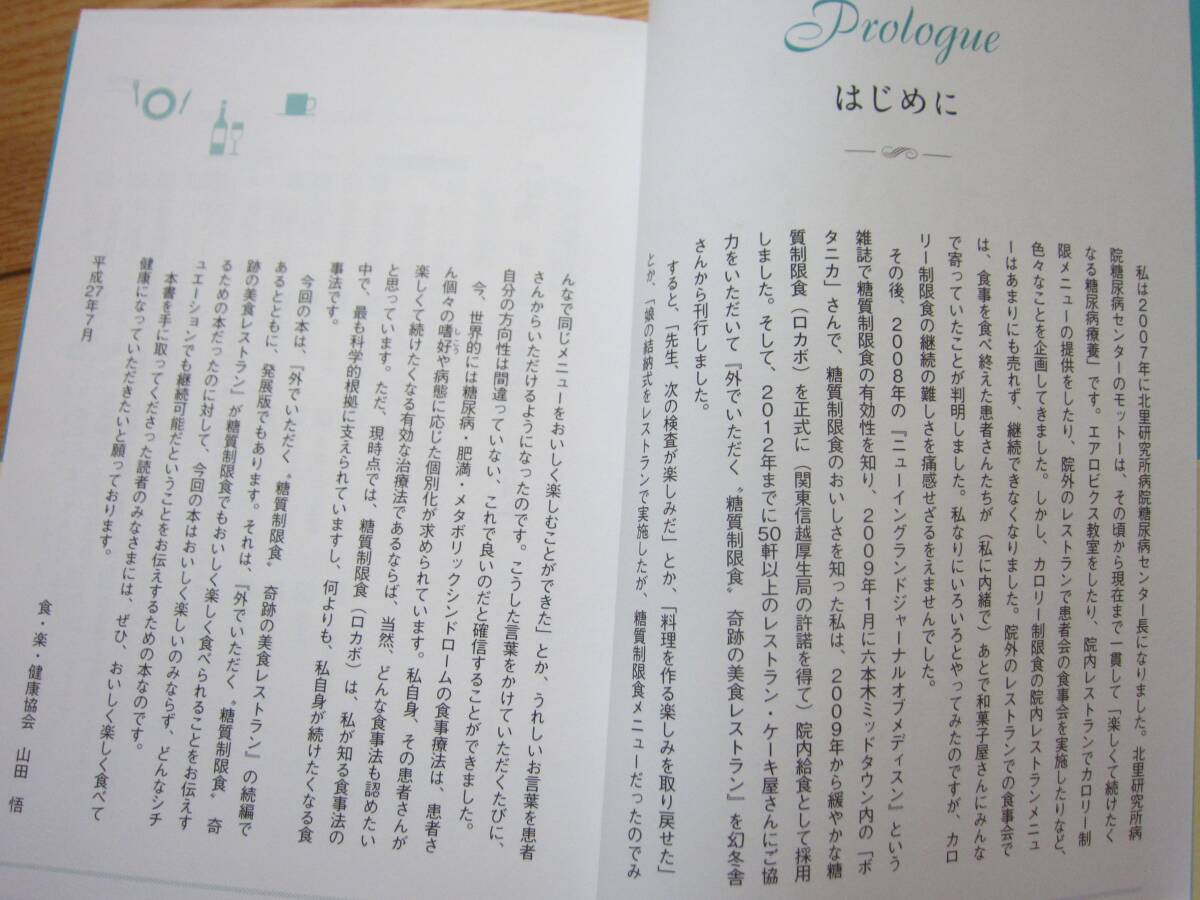 Prologue
はじめに
私は2007年に北里研究所病院糖尿病センター長になりました。北里研究所病
院糖尿病センターのモットーは、その頃から現在まで一貫して「楽しくて続けたく
なる糖尿病療養」です。エアロビクス教室をしたり、院内レストランでカロリー制
限メニューの提供をしたり、院外のレストランで患者会の食事会を実施したりなど、
色々なことを企画してきました。しかし、カロリー制限食の院内レストランメニュ
ーはあまりにも売れず、継続できなくなりました。院外のレストランでの食事会で
は、食事を食べ終えた患者さんたちが（私に内緒で）あとで和菓子屋さんにみんな
で寄っていたことが判明しました。私なりにいろいろとやってみたのですが、カロ
リー制限食の継続の難しさを痛感せざるをえませんでした。
その後、2008年の『ニューイングランドジャーナルオブメディスン』という
雑誌で糖質制限食の有効性を知り、2009年1月に六本木ミッドタウン内の「ボ
タニカ」さんで、糖質制限食のおいしさを知った私は、2009年から緩やかな糖
質制限食（ロカボ）を正式に（関東信越厚生局の許諾を得て）院内給食として採用
しました。そして、2012年までに50軒以上のレストラン・ケーキ屋さんにご協
力をいただいて『外でいただく〝糖質制限食〟 奇跡の美食レストラン』を幻冬舎
さんから刊行しました。
すると、「先生、次の検査が楽しみだ」とか、「料理を作る楽しみを取り戻せた」
とか、「娘の結納式をレストランで実施したが、糖質制限食メニューだったのでみ
んなで同じメニューをおいしく楽しむことができた」とか、うれしいお言葉を患者
さんからいただけるようになったのです。こうした言葉をかけていただくたびに、
自分の方向性は間違っていない、これで良いのだと確信することができました。
今、世界的には糖尿病・肥満・メタボリックシンドロームの食事療法は、患者さ
ん個々の嗜好や病態に応じた個別化が求められています。私自身、その患者さんが
楽しくて続けたくなる有効な治療法であるならば、当然、どんな食事法も認めたい
と思っています。ただ、現時点では、糖質制限食（ロカボ）は、私が知る食事法の
中で、最も科学的根拠に支えられていますし、何よりも、私自身が続けたくなる食
事法です。
今回の本は、『外でいただく〝糖質制限食〟 奇跡の美食レストラン』の続編で
あるとともに、発展版でもあります。それは、『外でいただく〝糖質制限食〟 奇
跡の美食レストラン』が糖質制限食でもおいしく楽しく食べられることをお伝えす
るための本だったのに対して、今回の本はおいしく楽しいのみならず、どんなシチ
ュエーションでも継続可能だということをお伝えするための本なのです。
本書を手に取ってくださった読者のみなさまには、ぜひ、おいしく楽しく食べて
健康になっていただきたいと願っております。
平成27年7月
食・楽・健康協会 山田 悟